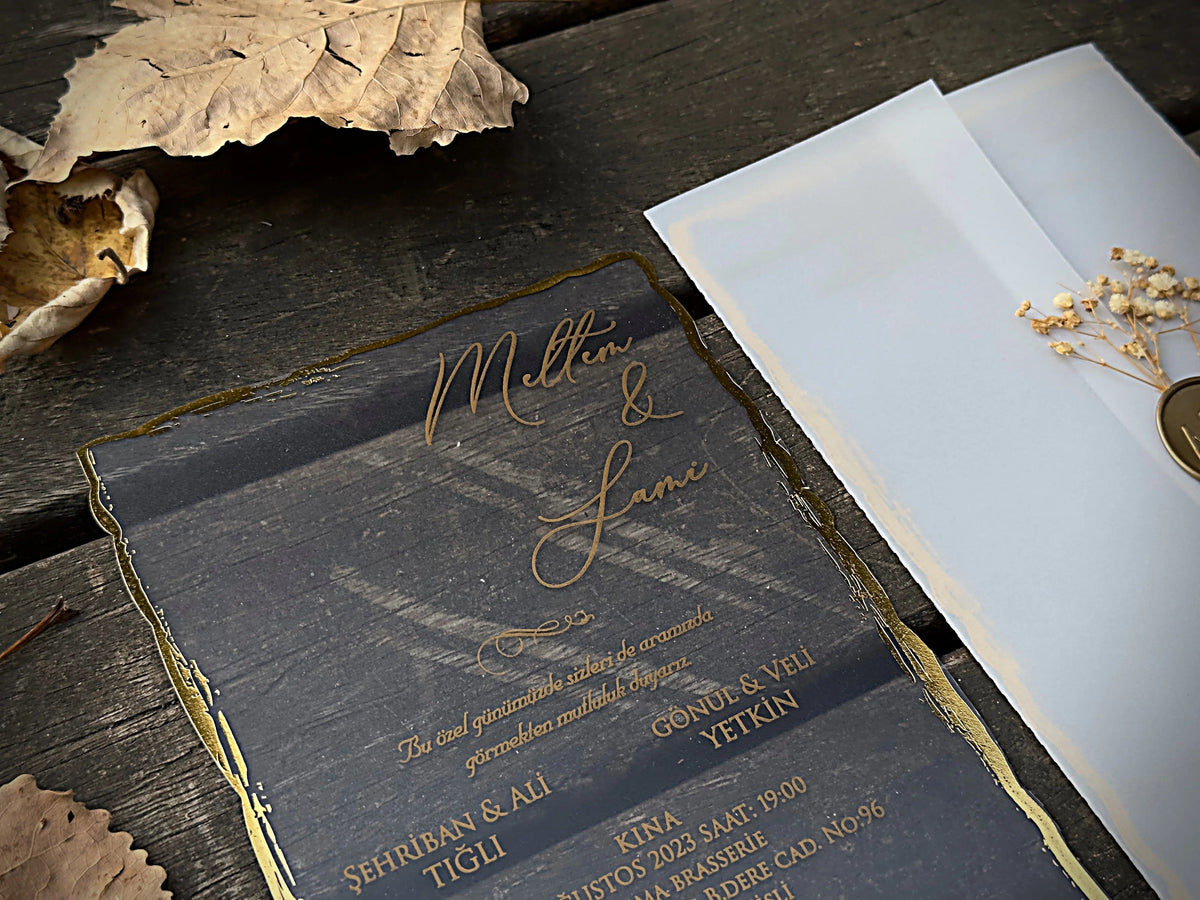 Meltem
&
Lami
Bu özel günümüzde sizleri de aramızda
görmekten mutluluk duyarız.
ŞEHRİBAN & ALİ
TIĞLI
GÖNÜL & VELİ
YETKİN
KINA
ĞUSTOS 2023 SAAT: 19:00
MA BRASSERIE
B.DERE CAD. NO:96
İSLİ